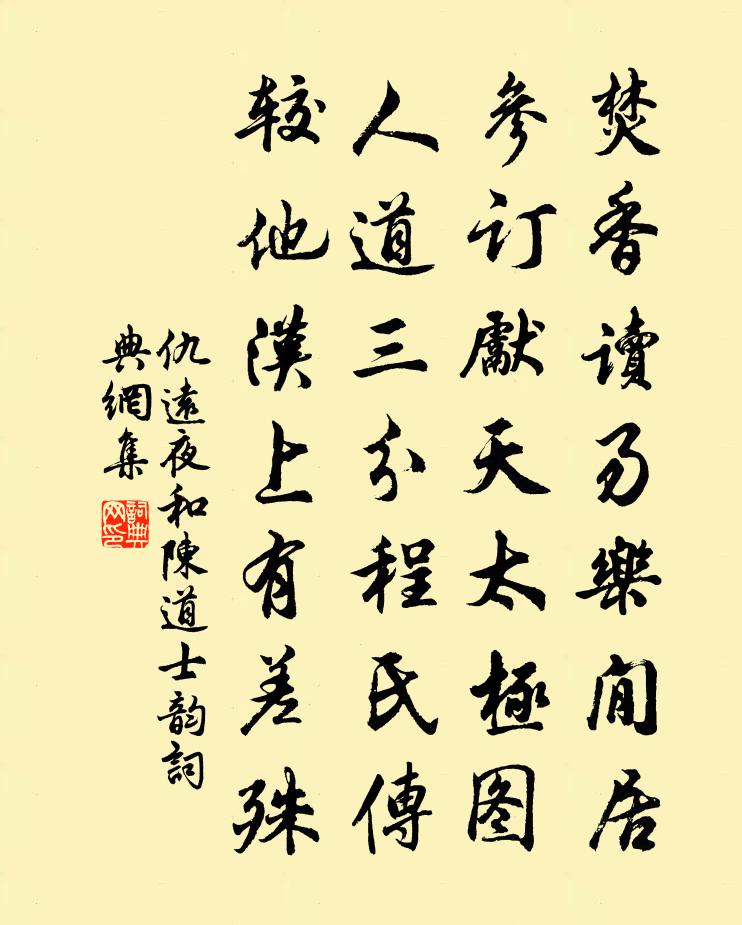 焚香讀易樂閒居
參订獻天太極图
人道三分程氏傳
较他漢上有差殊
仇遠夜和陳道士韵詞
典網集
詞典網印